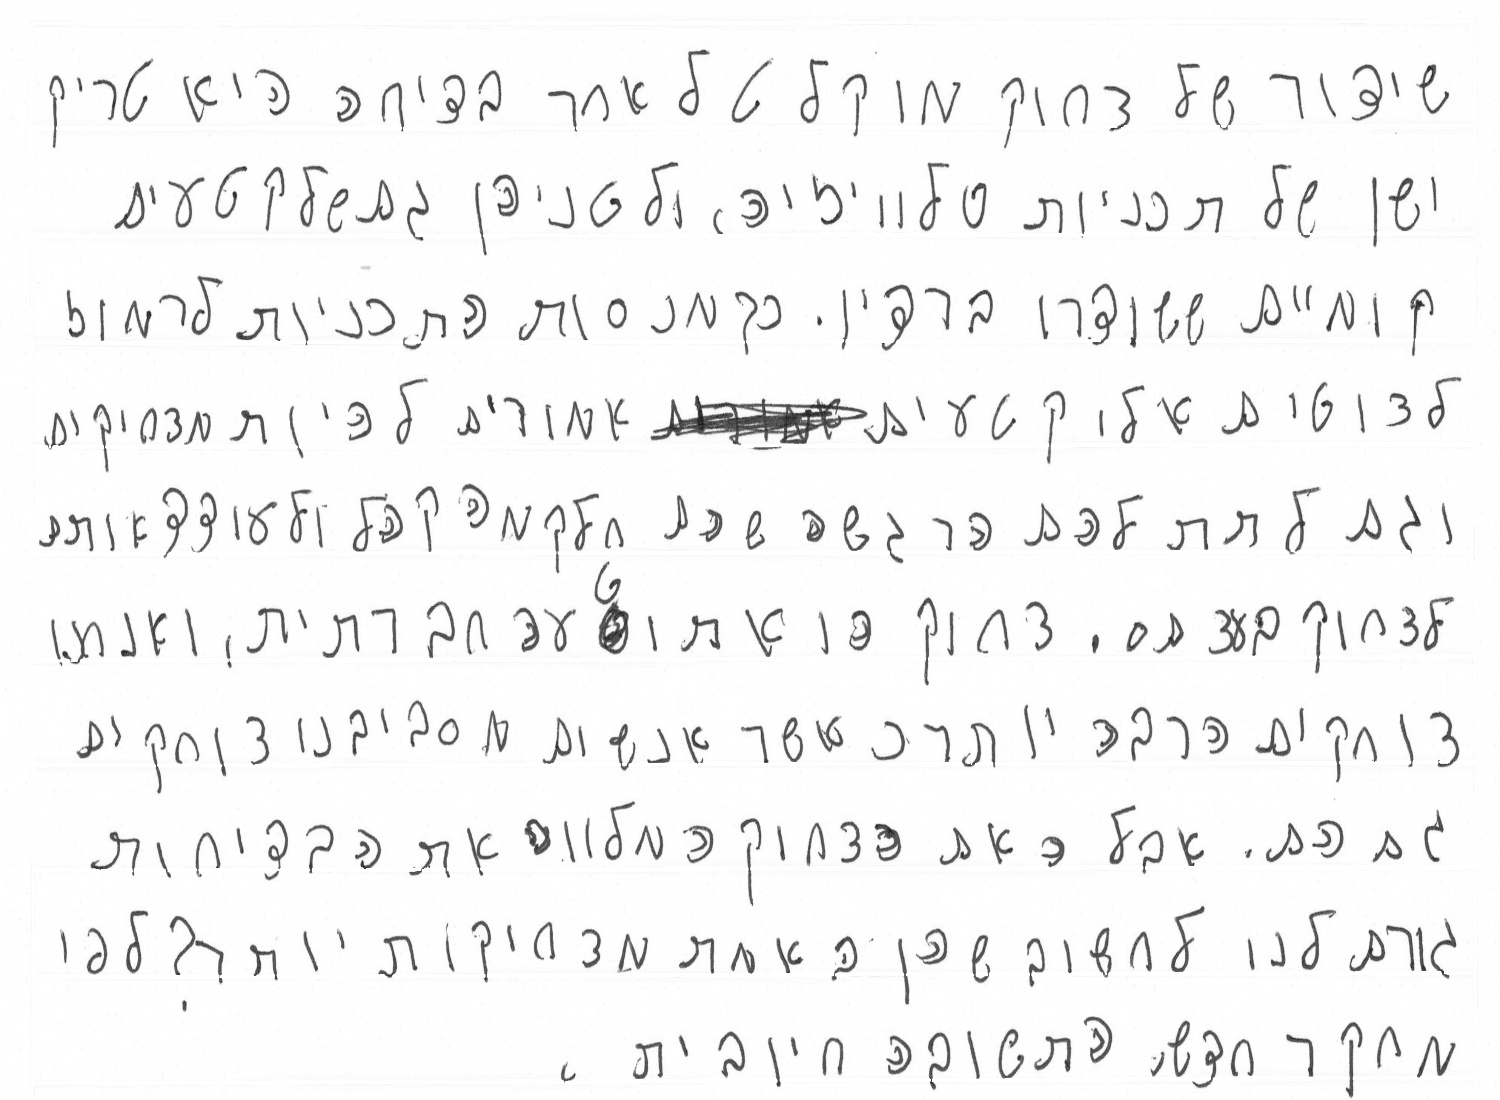 שידור של צחוק מוקלט לאחר בדיחה היא טריק
ישן של תכניות טלוויזיה, ולטניהן גם של קטעים
קומיים ששודרו ברדיו. כך מנסות התכניות לרמוז
לצוטים אלו קטעים אמורים להיות מצחיקים
וגם לתת להם הרגשה שהם חלק מהקהל ולעודד אותם
לצחוק בעצמם. צחוק הוא תוטעה חברתית, ואנחנו
צוחקים הרבה יותר כאשר אנשים מסביבנו צוחקים
גם הם. אבל האם הצחוק המלווה את הבדיחות
גורם לנו לחשוב שהן באמת מצחיקות יותר? לפי
מחקר חדש, התשובה חיובית.